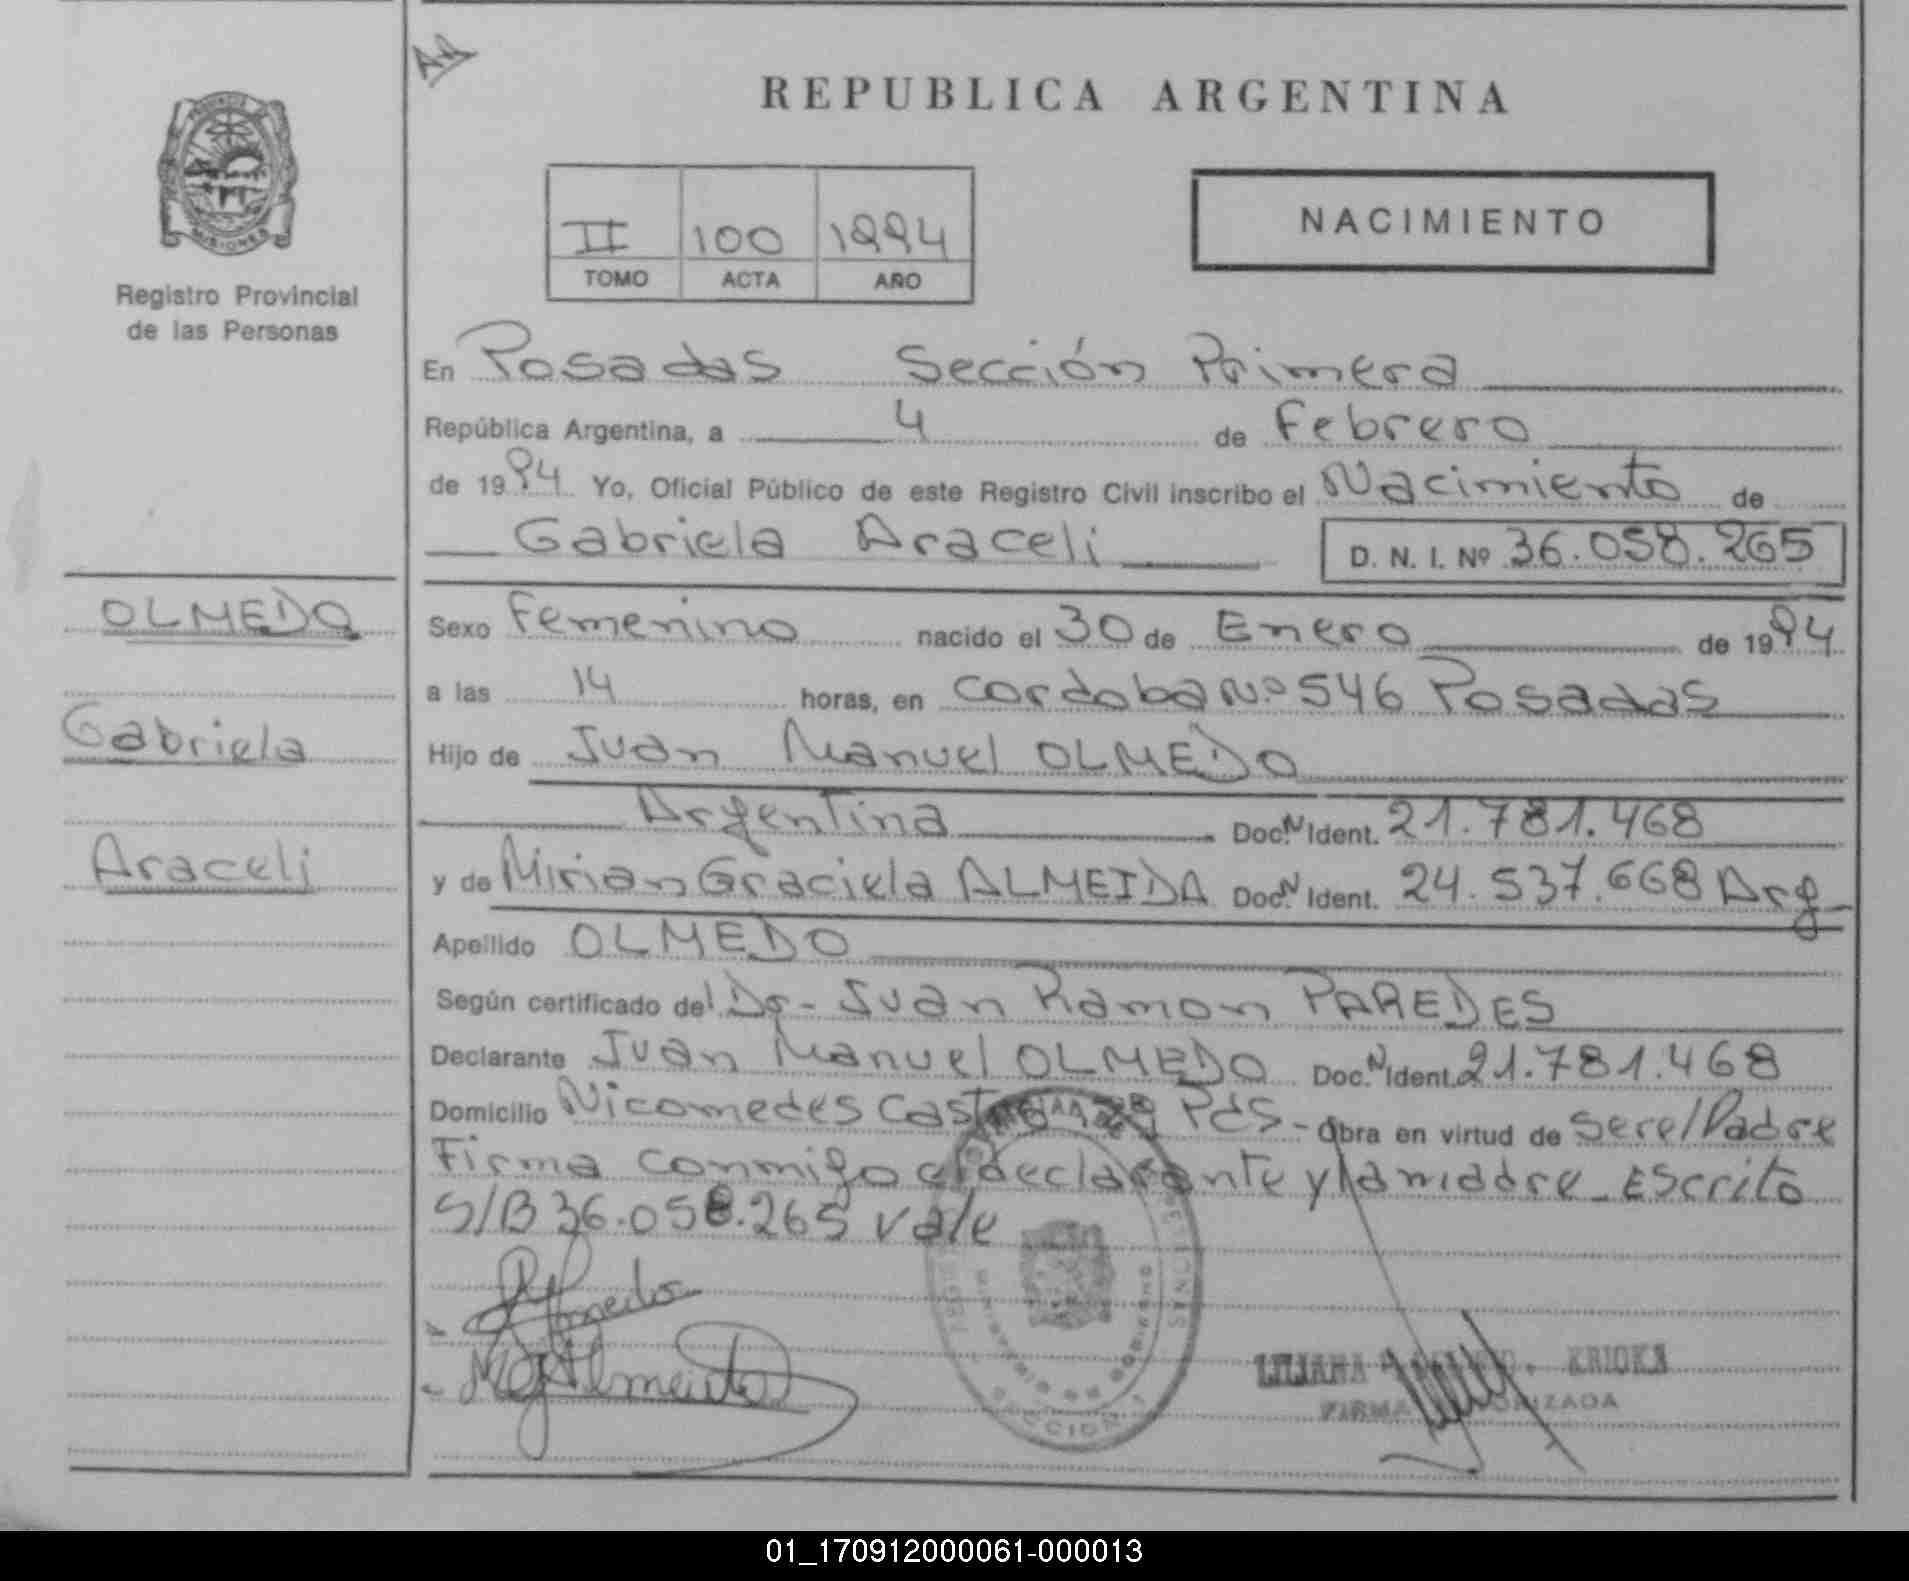 REPUBLICA ARGENTINA
MISIONES
Registro Provincial
de las Personas
II 100 1994
TOMO ACTA AÑO
NACIMIENTO
En Posadas Sección Primera
República Argentina, a 4 de Febrero
de 1994 Yo, Oficial Público de este Registro Civil inscribo el Nacimiento de
Gabriela Araceli D. N. I. Nº 36.058.265
OLMEDO
Gabriela
Araceli
Sexo Femenino nacido el 30 de Enero de 1994
a las 14 horas, en Cordoba Nº 546 Posadas
Hijo de Juan Manuel OLMEDO
Argentina Doc. N Ident. 21.781.468
y de Mirian Graciela ALMEIDA Doc. N Ident. 24.537.668 Arg
Apellido OLMEDO
Según certificado del Dr - Juan Ramon PAREDES
Declarante Juan Manuel OLMEDO Doc. N Ident. 21.781.468
Domicilio Nicomedes Castro Pds - Obra en virtud de ser el Padre
Firma conmigo el declarante y la madre - Escrito
S/B 36.058.265 vale
MINISTERIO DE GOBIERNO
SECCION 1
LILIANA KRIOKA
FIRMA AUTORIZADA
01_170912000061-000013